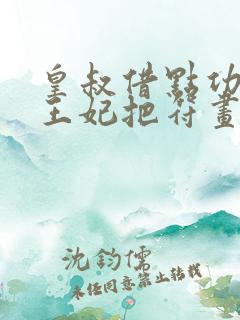 皇叔借點功
王妃把符畫
沈鈞儒
未經同意禁止轉載